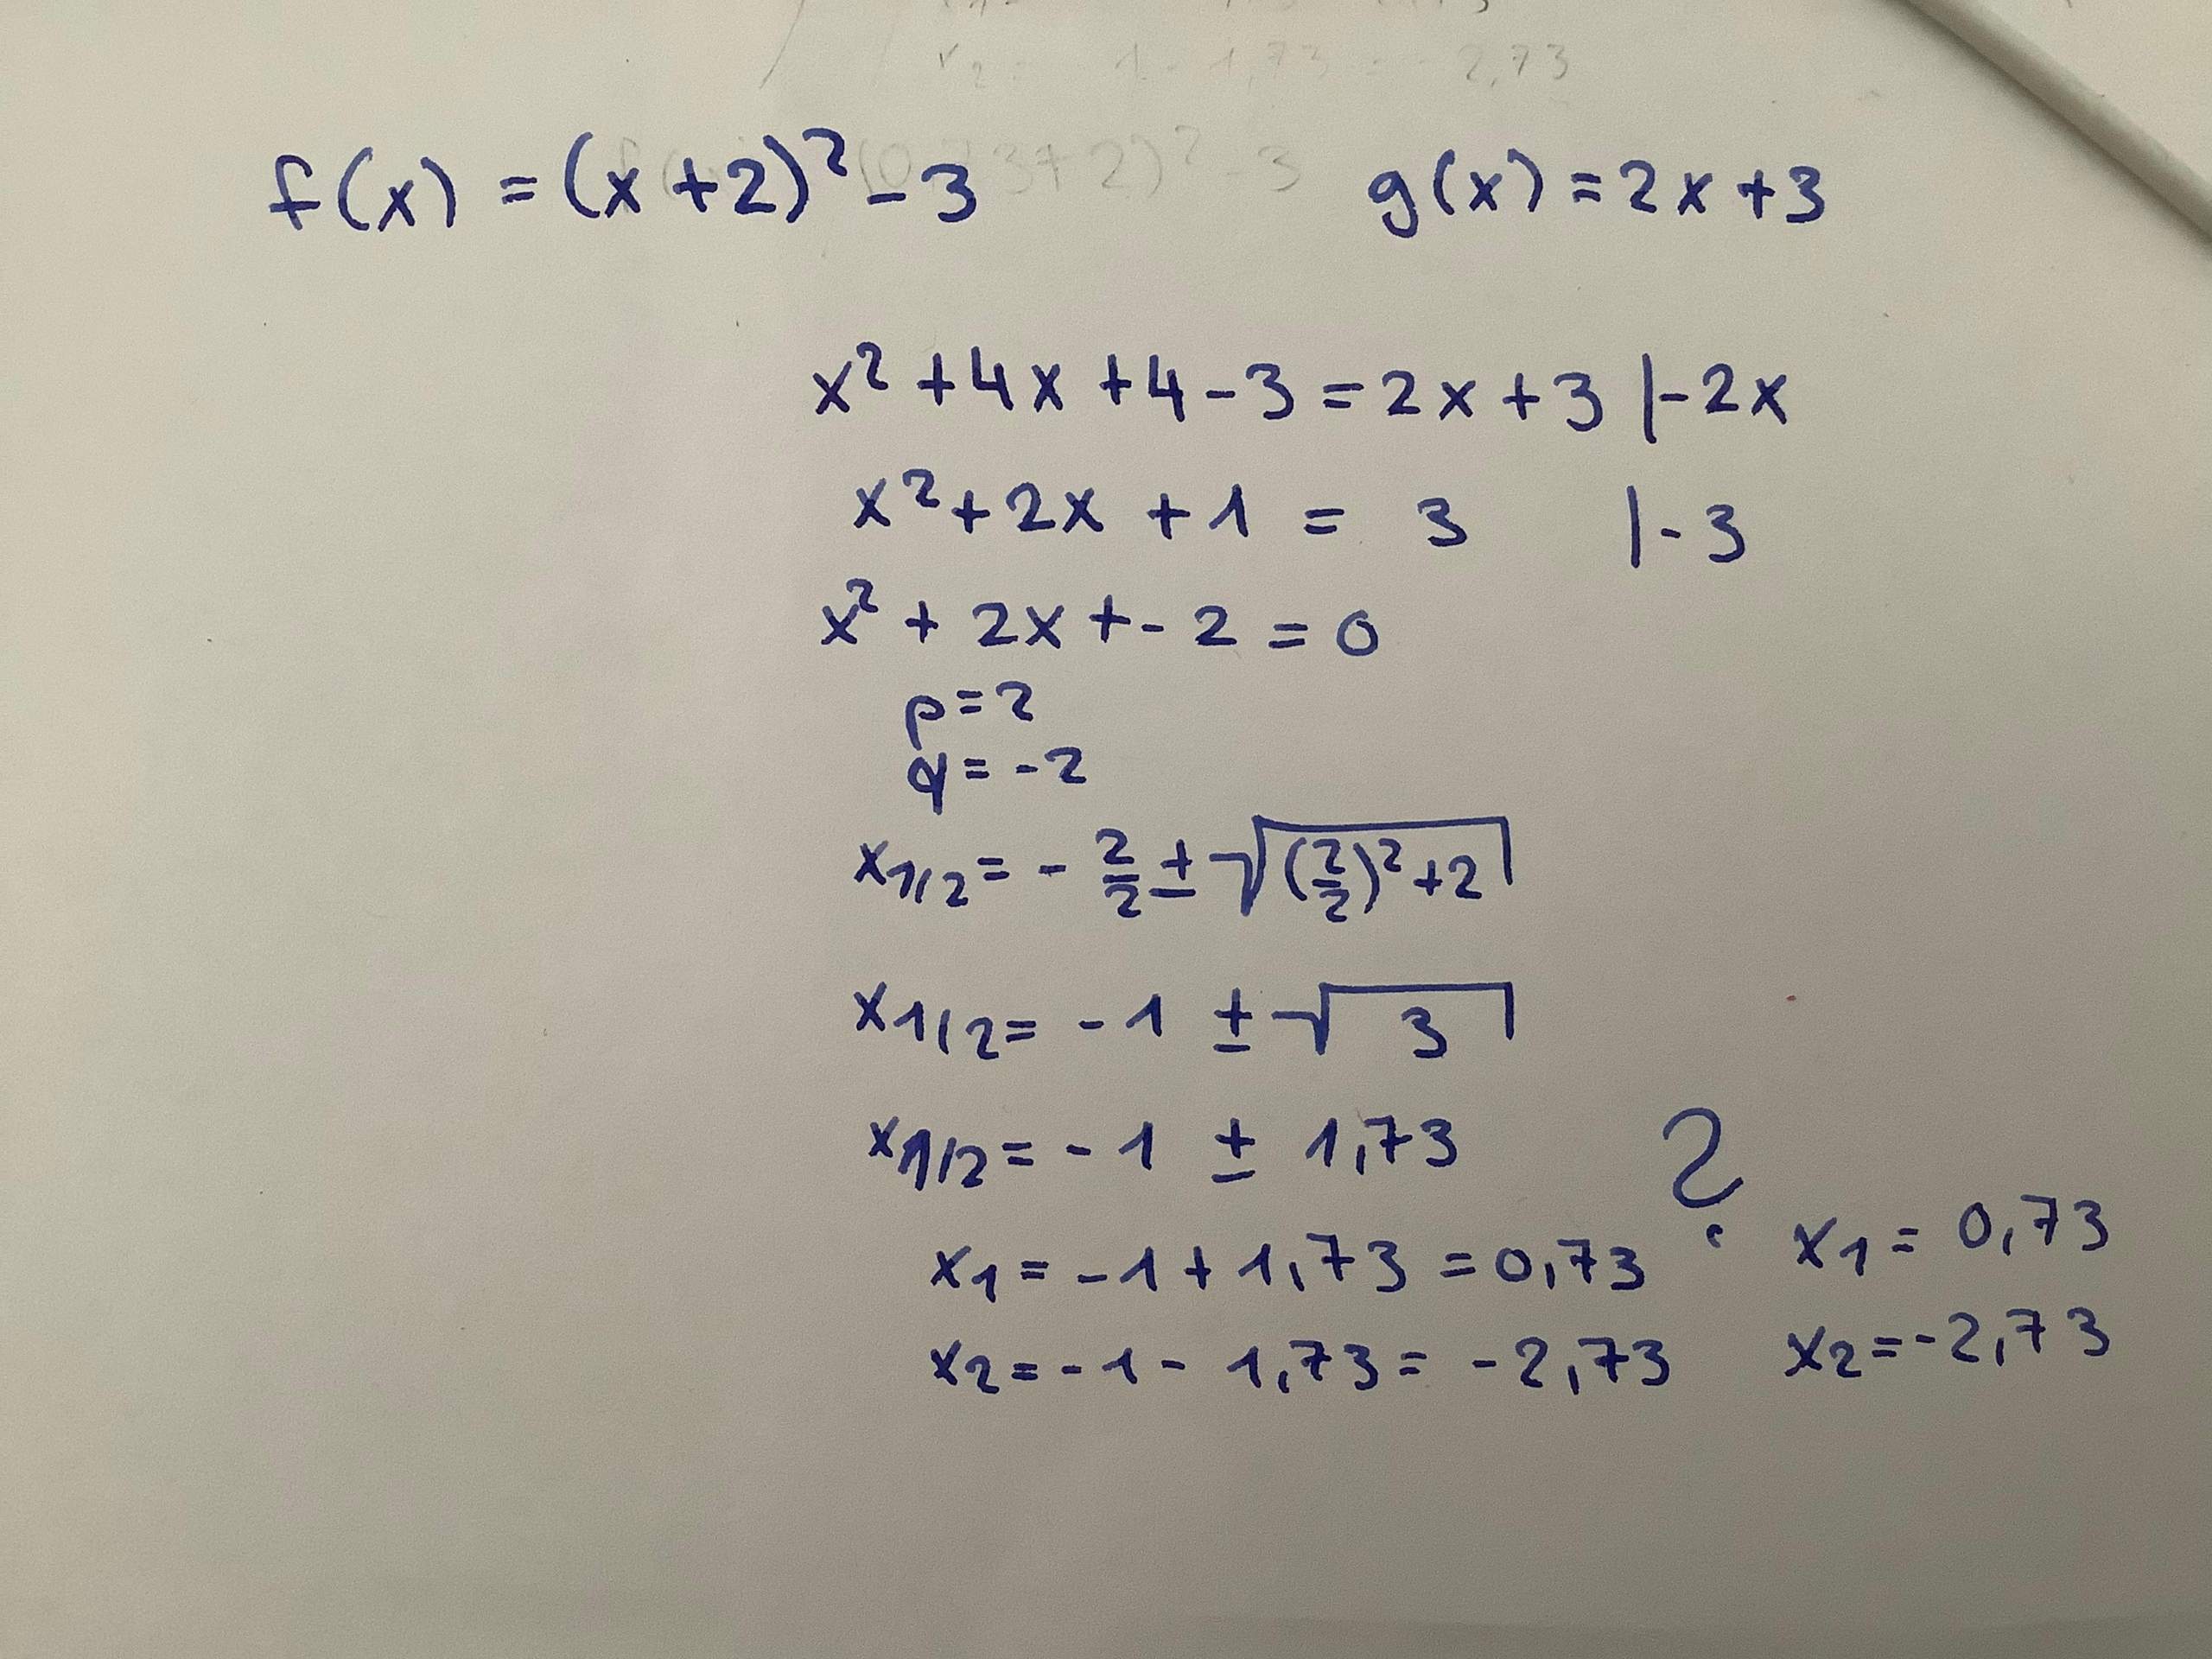 f(x) = (x+2)² - 3 g(x) = 2x + 3
x² + 4x + 4 - 3 = 2x + 3 | - 2x
x² + 2x + 1 = 3 | - 3
x² + 2x + - 2 = 0
p = 2
q = - 2
x1/2 = - 2/2 ± √((2/2)² + 2)
x1/2 = - 1 ± √3
x1/2 = - 1 ± 1,73
?
x1 = - 1 + 1,73 = 0,73 x1 = 0,73
x2 = - 1 - 1,73 = - 2,73 x2 = - 2,73